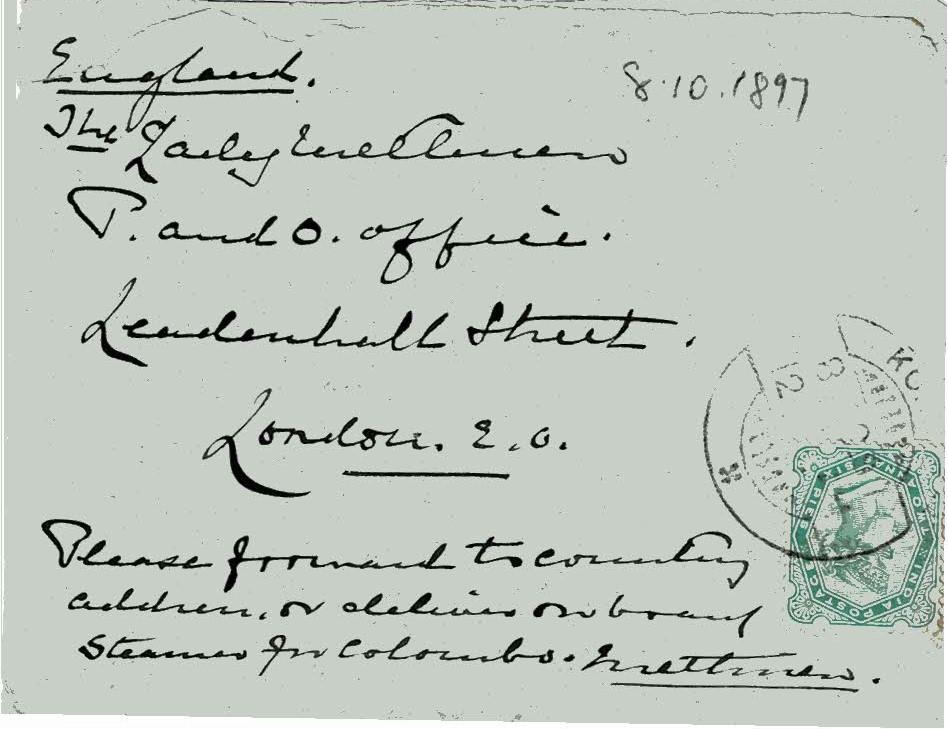 England.
8.10.1897
The Lady Methuen
P. and O. office.
Leadenhall Street.
London. E.C.
Please forward to country
address, or deliver on board
Steamer for Colombo. Methuen.
KO
INDIA POSTAGE
TWO ANNAS SIX PIES